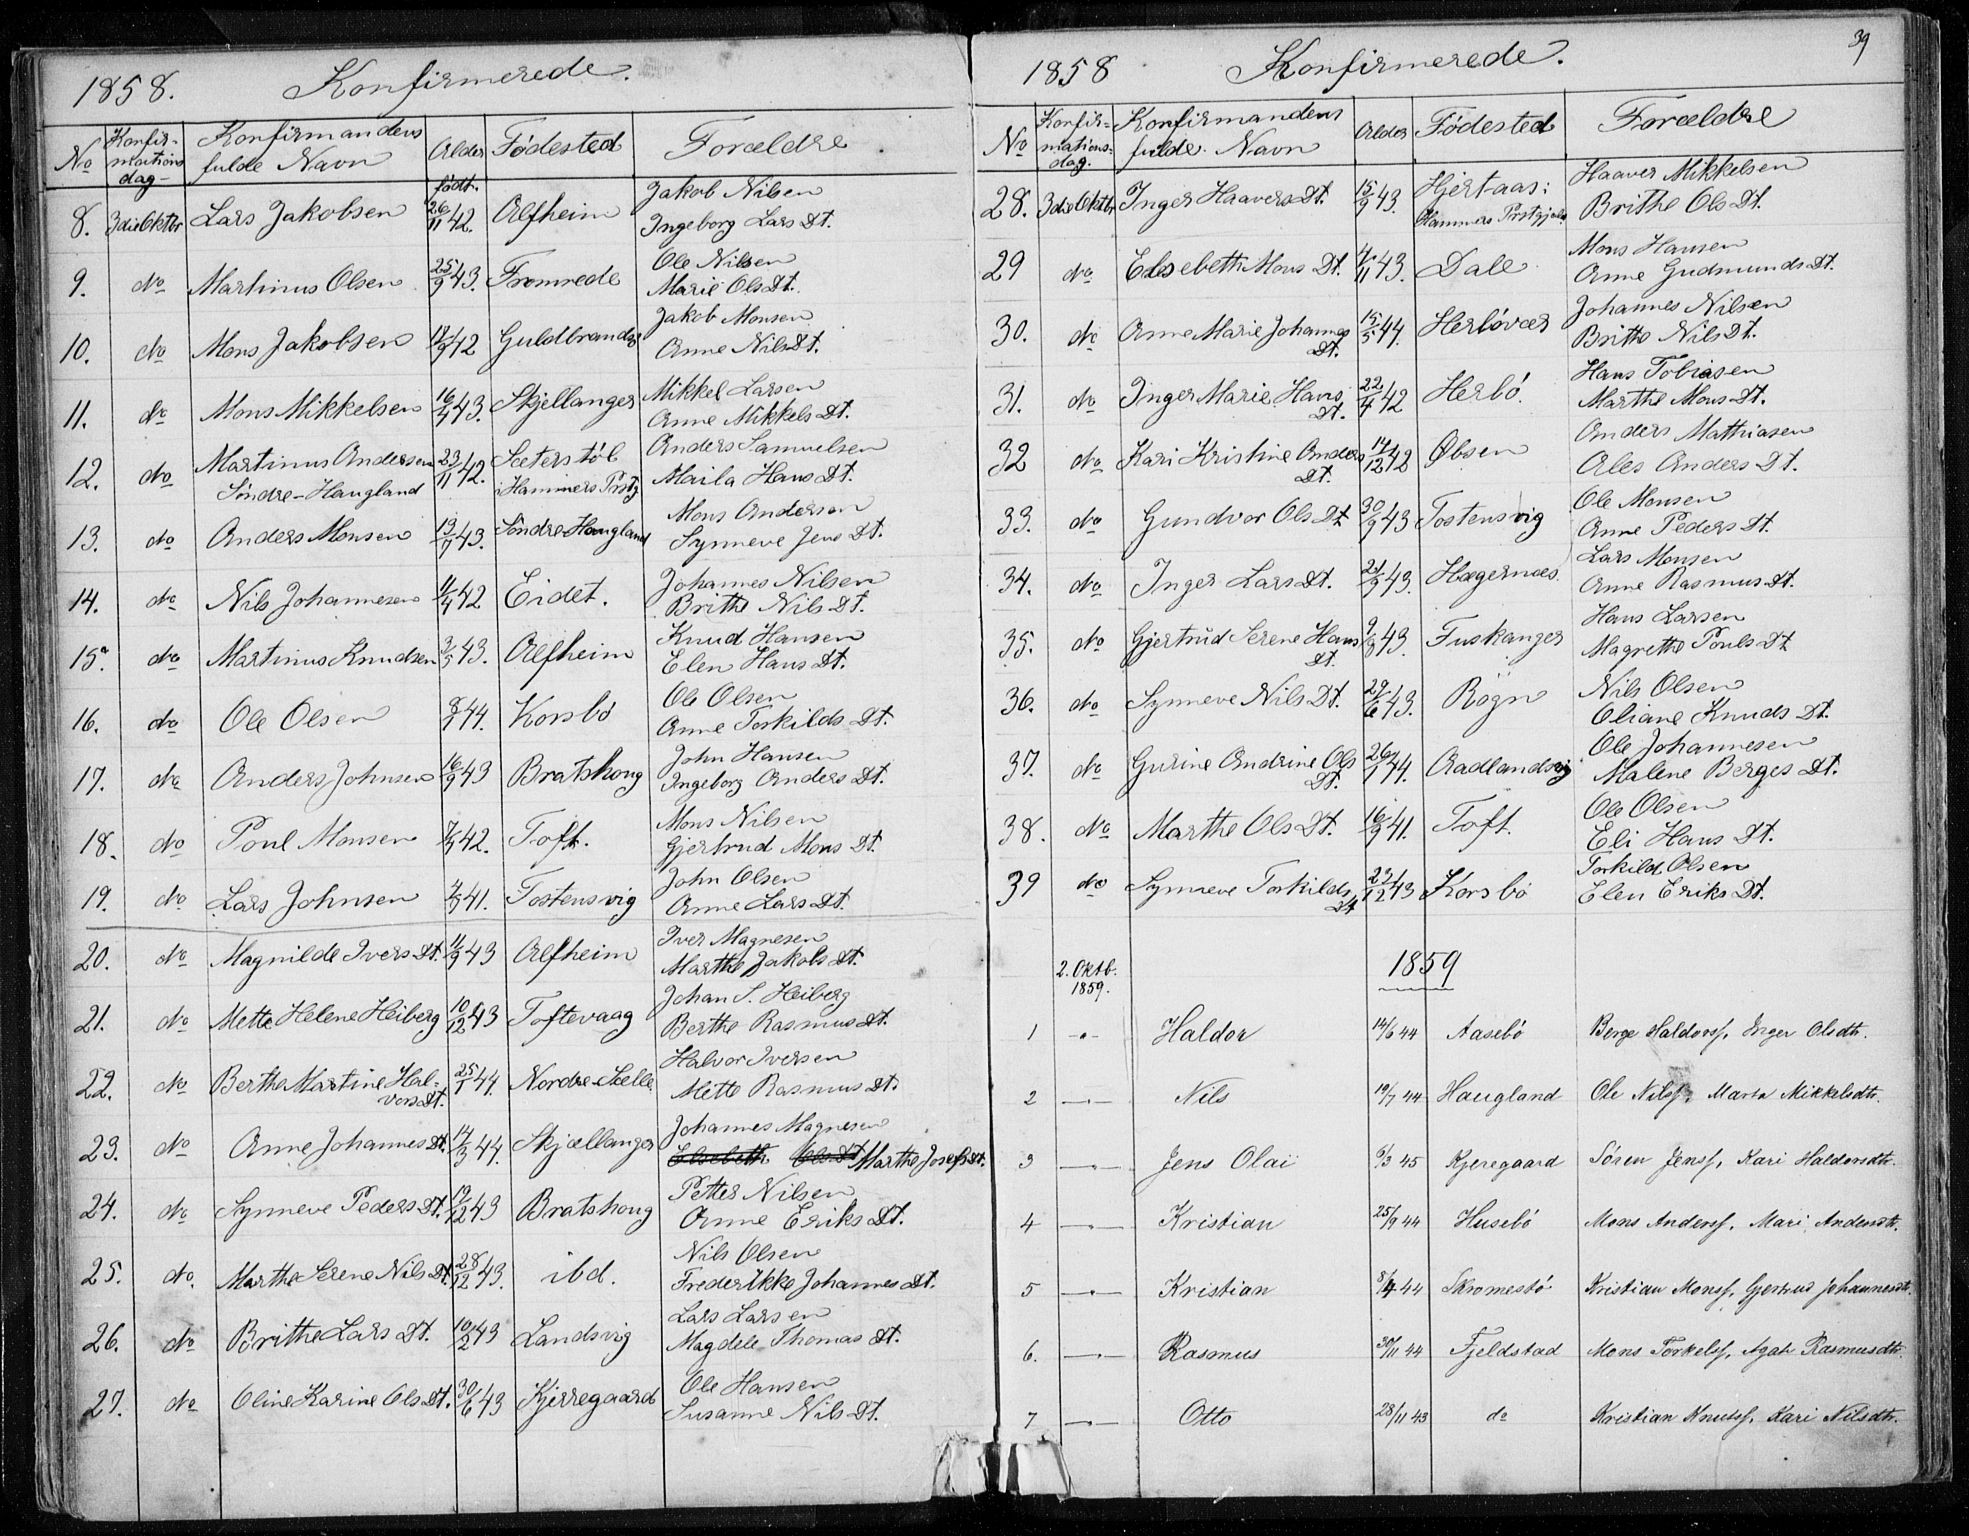 1858. Konfirmerede.
No Konfirmations dag Konfirmandens fulde Navn Alder Fødested Forældre
født.
8. 3die Oktbr Lars Jakobsen 26/11 42. Alfheim Jakob Nilsen
Ingeborg Lars Dt.
9. do Martinus Olsen 25/9 43. Fromrede Ole Nilsen
Marie Ols Dt.
10. do Mons Jakobsen /9 42 Guldbrands Jakob Monsen
Anne Nils Dt.
11. do Mons Mikkelsen 16/4 43. Skjellanger Mikkel Larsen
Anne Mikkels Dt.
12. do Martinus Andersen 23/11 42. Sæterstøl Anders Samuelsen
Søndre-Haugland i Hammers Prstg Maila Hans Dt.
13. do Anders Monsen 43. Søndre-Haugland Mons Andersen
Synneve Jens Dt.
14. do Nils Johannesen 42 Eidet. Johannes Nilsen
Brithe Nils Dt.
15. do Martinus Knudsen 3/5 43. Alfheim Knud Hansen
Elen Hans Dt.
16. do Ole Olsen 44. Korsbø Ole Olsen
Anne Torkilds Dt.
17. do Anders Johnsen 16/9 43 Bratshoug John Hansen
Ingeborg Anders Dt.
18. do Poul Monsen 42. Toft. Mons Nilsen
Gjertrud Mons Dt.
19. do Lars Johnsen 41. Tostensvig John Olsen
Anne Lars Dt.
20. do Magnilde Ivers Dt. 11/9 43 Alfheim Iver Magnesen
Marthe Jakobs Dt.
21. do Mette Helene Heiberg 10/12 43 Toftevaag Johan S. Heiberg
Berthe Rasmus Dt.
22. do Berthe Martine Hal- 25/1 44. Nordre-Skelle Halvor Iversen
vors Dt. Mette Rasmus Dt.
23. do Anne Johannes Dt. 14/3 44. Skjællanger Johannes Magnesen
Elsebeth Ols Dt Marthe Josefs Dt.
24. do Synneve Peders Dt. /12 43 Bratshoug Petter Nilsen
Anne Eriks Dt.
25. do. Marthe Serene Nils Dt. 28/12 43. ibd. Nils Olsen
Frederikke Johannes Dt.
26. do Brithe Lars Dt. 10/2 43 Landsvig Lars Larsen
Magdele Thomas Dt.
27. do Oline Karine Ols Dt. 30/6 43 Kjerregaard Ole Hansen
Susanne Nils Dt.
39
1858 Konfirmerede.
No Konfirmations-dag. Konfirmandens fulde Navn Alder Fødested Forældre
28. 3die Oktbr Inger Haavers Dt. 15/9 43. Hjertaas i Haaver Mikkelsen
Hammers Prstgjeld Brithe Ols Dt.
29 do Elsebeth Mons Dt. /11 43. Dale Mons Hansen
Anne Gudmunds Dt.
30. do Anne Marie Johannes 15/5 44. Herløvær Johannes Nilsen
Dt. Brithe Nils Dt.
31. do Inger Marie Hans 22/4 42 Herlø. Hans Tobiasen
Dt. Marthe Mons Dt.
32 do Kari Kristine Anders 14/12 42 Øbsen Anders Mathiasen
Dt. Ales Anders Dt.
33. do Gundvor Ols Dt 30/9 43 Tostensvig Ole Monsen
Anne Peders Dt.
34. do Inger Lars Dt. 21/9 43. Hægernæs. Lars Monsen
Anne Rasmus Dt.
35. do Gjertrud Serene Hans 9/9 43. Fuskanger Hans Larsen
Dt. Magrethe Pouls Dt
36. do Synneve Nils Dt. 29/6 43. Røgn Nils Olsen
Oliane Knuds Dt.
37. do Gurine Andrine Ols 26/1 44. Aadlandsvig Ole Johannesen
Dt. Malene Berges Dt.
38. do Marthe Ols Dt. 16/9 41. Toft. Ole Olsen
Eli Hans Dt.
39 do Synneve Torkilds 23/12 43 Korsbø Torkild Olsen
Dt Elen Eriks Dt.
1859
2. Oktb. 1859.
1 -"- Haldor 14/6 44 Aasebø Berge Haldorsf, Inger Olsdtr.
2 -"- Nils 19/7 44 Haugland Ole Nilsf, Marta Mikkelsdtr.
3 -"- Jens Olai 6/3 45 Kjeregaard Søren Jensf, Kari Haldorsdtr.
4 -"- Kristian 25/9 44 Husebø Mons Andersf, Mari Andersdtr.
5 -"- Kristian 8/4 44 Skromestø Kristian Monsf, Gjertrud Johannesdtr.
6. -"- Rasmus 30/11 44 Fjeldstad Mons Torkelsf, Agate Rasmusdtr.
7 -"- Otto 28/11 43 do Kristian Knutsf, Kari Nilsdtr.